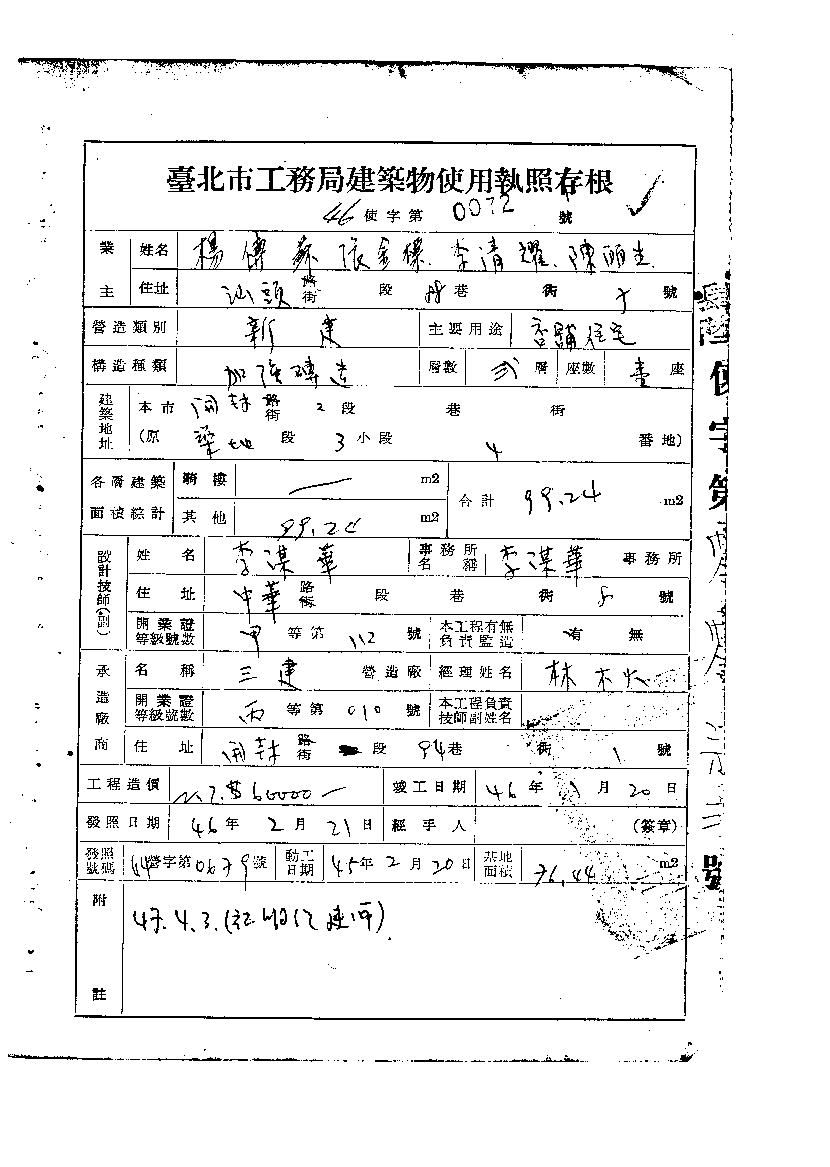 臺北市工務局建築物使用執照存根
46 使字第 0072 號
業主 姓名 楊傳 張金 李清耀 陳
住址 汕頭 路街 段 巷 街 號
營造類別 新建 主要用途 店舖住宅
構造種類 加強磚造 層數 弍 層 座數 壹 座
建築地址 本市 開封 路街 2 段 巷 街
(原 段 3 小段 4 番地)
各層建築面積綜計 騎樓 — m2 合計 99.24 m2
其他 99.24 m2
設計技師(副) 姓名 李謀華 事務所名稱 李謀華 事務所
住址 中華 路街 段 巷 街 8 號
開業證等級號數 甲 等第 112 號 本工程有無負責監造 有 無
承造廠商 名稱 三建 營造廠 經理姓名 林木火
開業證等級號數 丙 等第 010 號 本工程負責技師副姓名
住址 開封 路街 段 94 巷 街 1 號
工程造價 60000— 竣工日期 46 年 月 20 日
發照日期 46 年 2 月 21 日 經手人 (簽章)
發照號碼 44 營字第 0679 號 動工日期 45 年 2 月 20 日 基地面積 76.44 m2
附註 47.4.3.
肆陸使字第 號